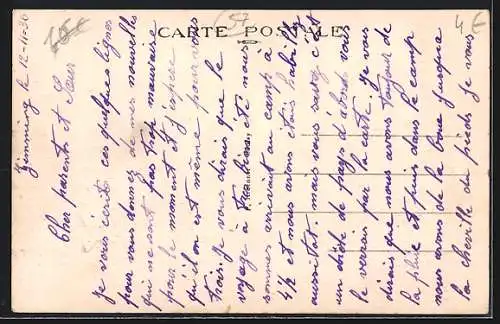 CARTE POSTALE
16€
(57)
4€
le 12-11-30
Cher parents et Sœur
je vous écris ces quelques lignes
pour vous donnez de mes nouvelles
qui ne sont pas trop mauvaise
pour le moment et j'espère
qu'il en est même pour vous
trois. je vous dirais que le
voyage à été nous
sommes arrivait au camp à
4½ et nous avons étais habiller
aussitôt. mais vous savez c'est
un drôle de pays d'abord vous
le verrais par la carte. je vous
dirais que nous avons toujour de
la pluie et puis dans le camp
nous avons de la boue jusque
la cheville du pieds. je vous